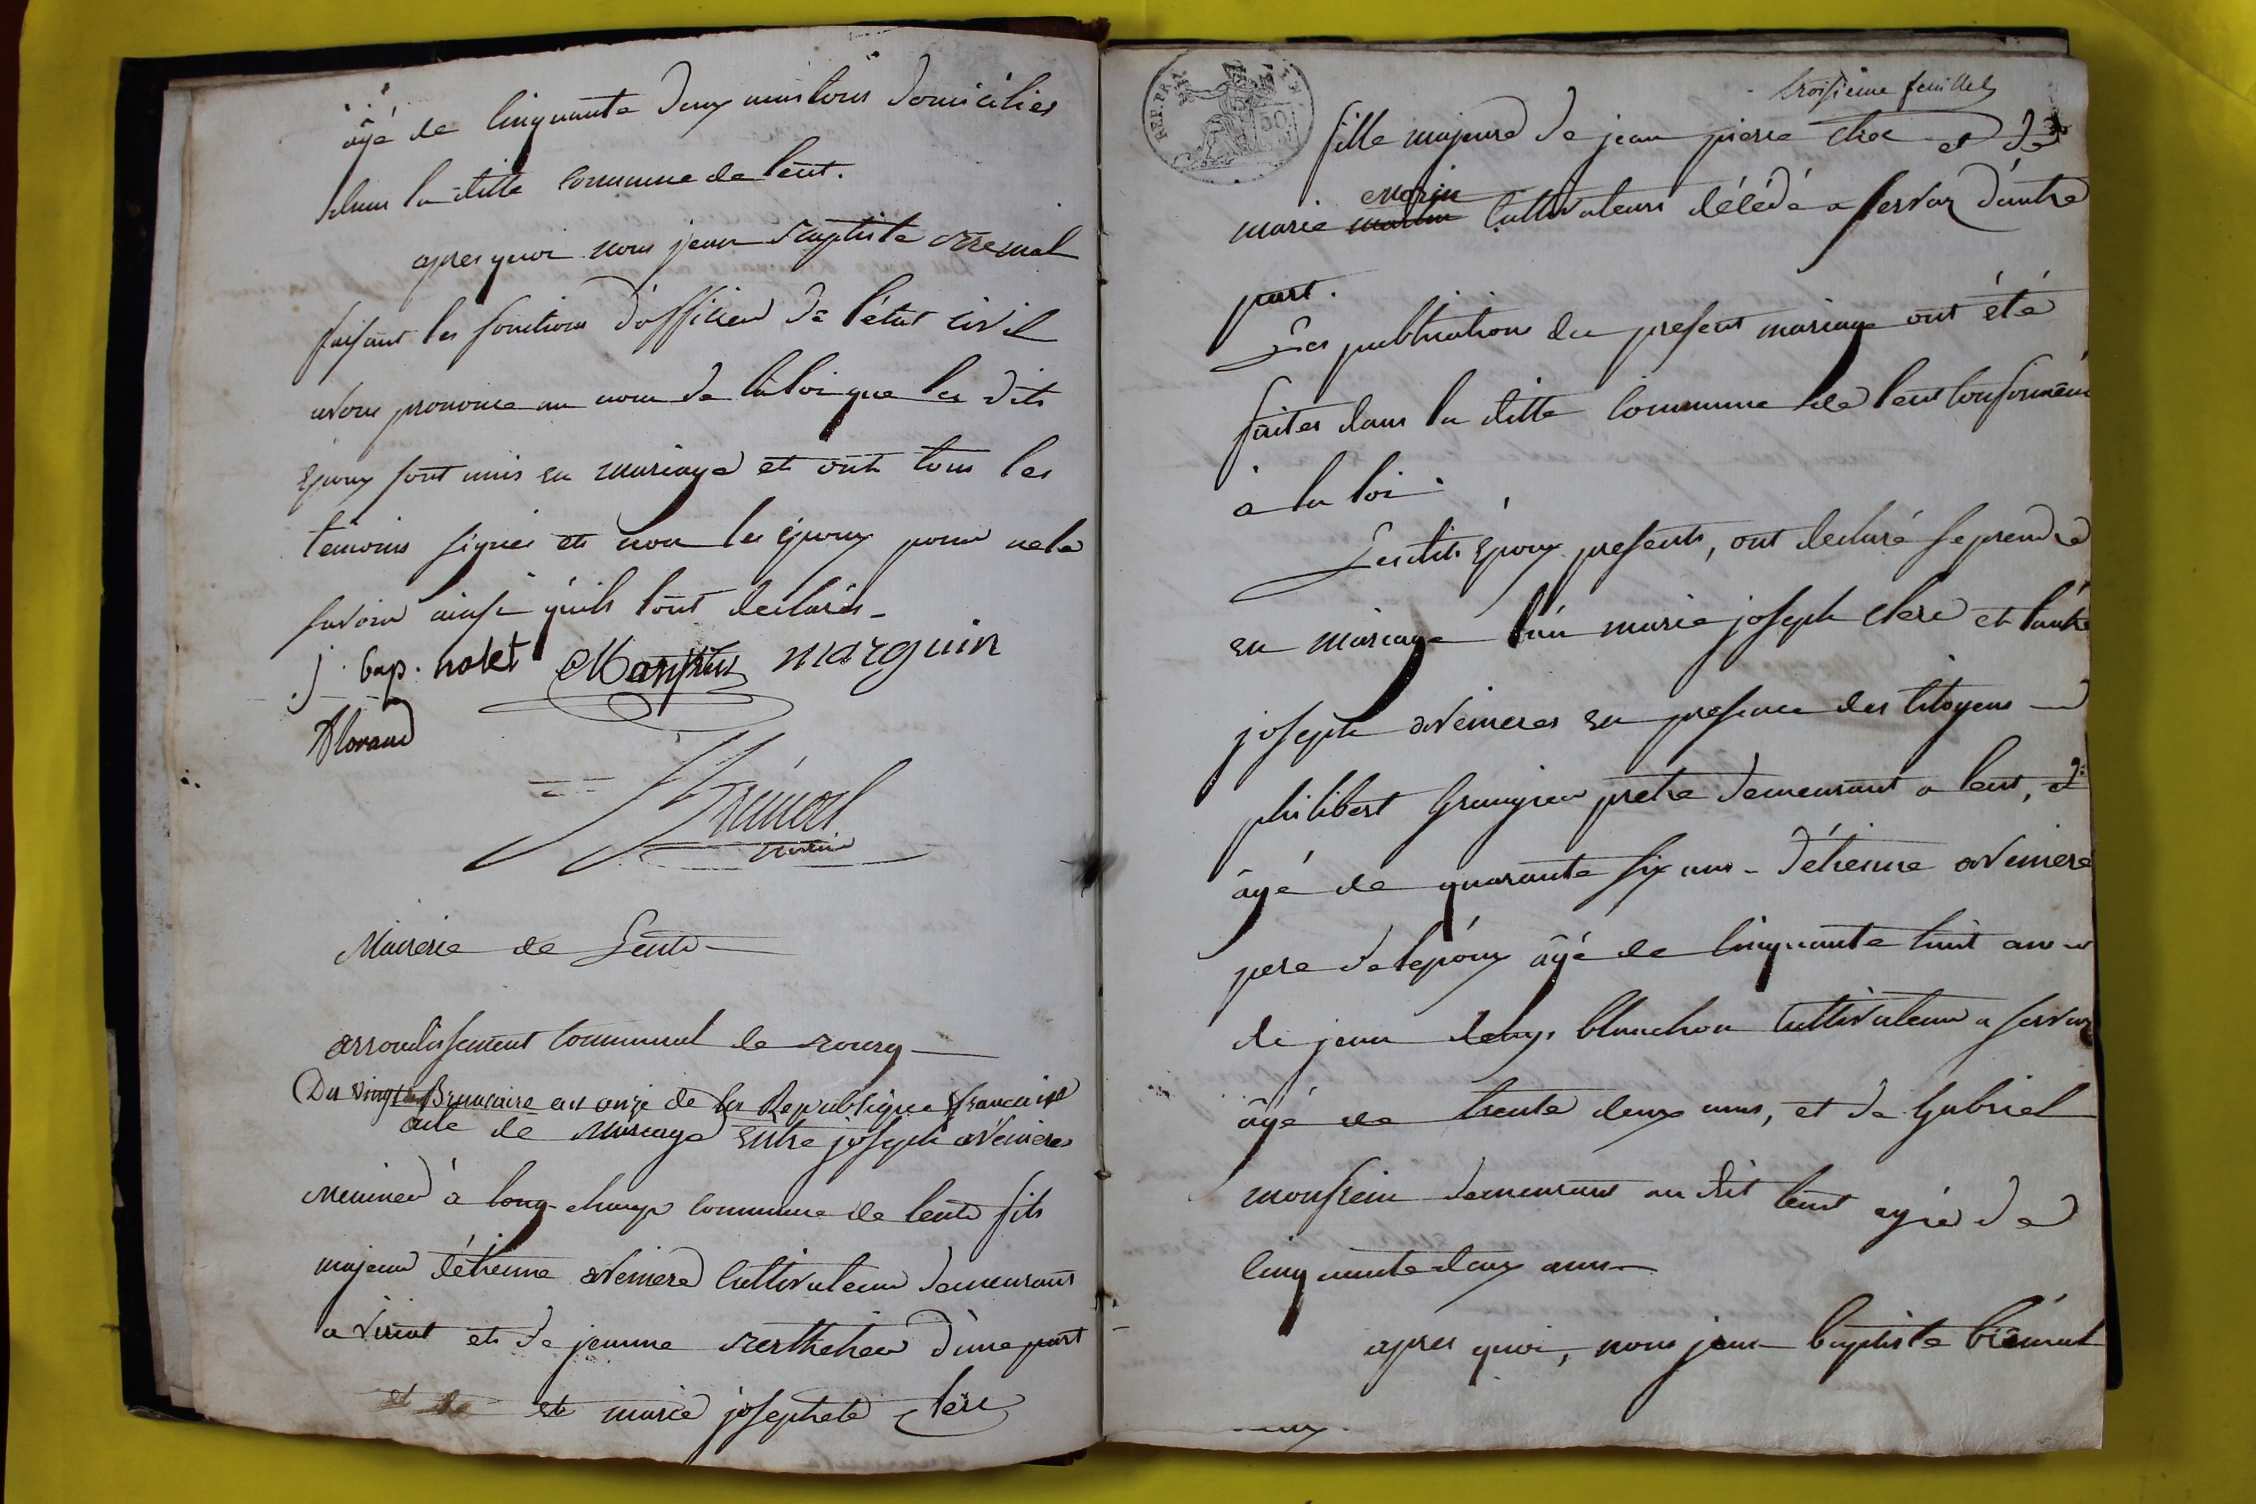 âgé de cinquante deux ans tous domiciliés
dans la ditte commune de lent.
apres quoi nous jean Baptiste Bremal
faisant les fonctions d'officier de l'état civil
avons prononcé au nom de la loi que les dits
Epoux sont unis en mariage et ont tous les
temoins signés et non les époux pour ne le
savoir ainsi qu'ils l'ont declarés
j. bap. nolet marguin
Morand
Bremal
maire
Mairerie de Lent
arrondissement communal de Bourg
Du vingt Brumaire an onze de la Republique francaise
acte de Mariage Entre joseph aveniere
à long-champ commune de lent fils
majeur d'étienne aveniere cultivateur demeurant
a viriat et de jeanne d'une part
et de et marie josephete clerc
REP. FRA
50
troisieme feuillet
fille majeure de jean pierre clerc et de
morin
marie cultivateurs décédé a servas d'autre
part.
Les publications du present mariage ont été
faites dans la ditte commune de lent conformém
à la loi.
Les dits Epoux presents, ont declaré se prendre
en mariage l'un marie joseph clerc et l'autre
joseph avenieres en presence des citoyens
philibert grangier prêtre demeurant a lent, et
âgé de quarante six ans - d'étienne aveniere
pere de lepoux âgé de cinquante huit ans
de jean blanchon cultivateur a servas
âgé de trente deux ans, et de gabriel
demeurant au dit lent agé de
cinquante deux ans
apres quoi, nous jean baptiste brémal